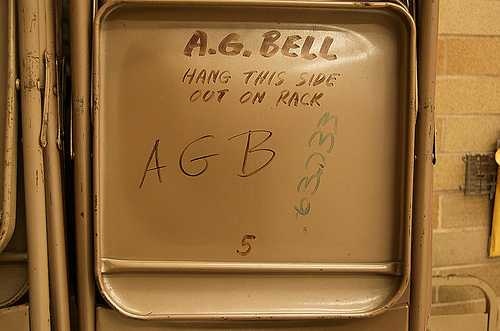 A.G. BELL
HANG THIS SIDE
OUT ON RACK
AGB
5